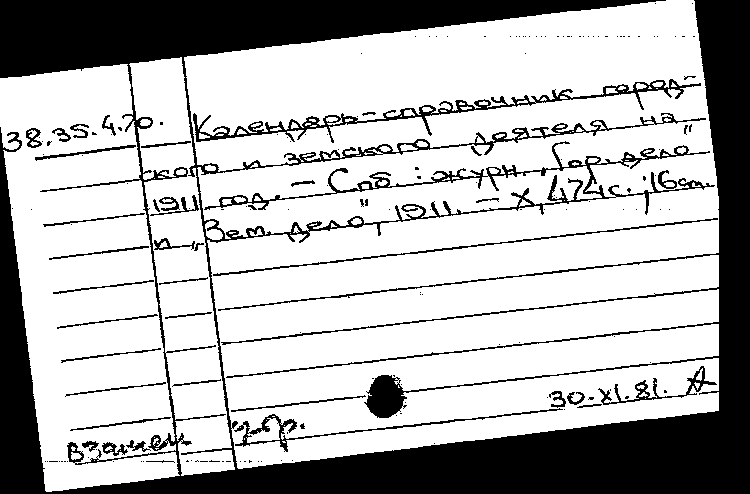 38.35.4.70. Календарь-справочник город-
ского и земского деятеля на
1911 год. – Спб. : журн. „Гор. дело"
и „Зем. дело", 1911. – X, 474 с.; 16 см.
30.XI.81.
Взамен